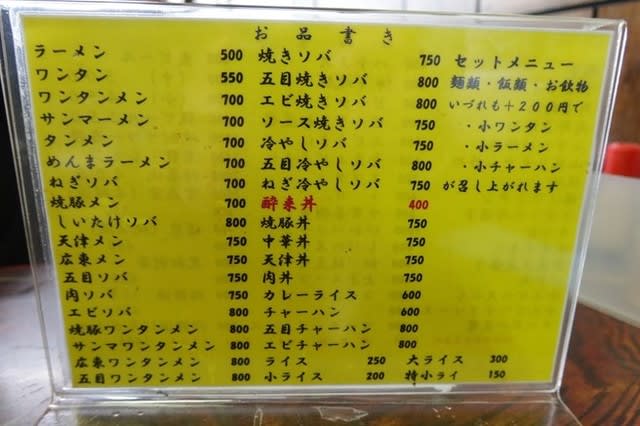 お品書き
ラーメン 500
ワンタン 550
ワンタンメン 700
サンマーメン 700
タンメン 700
めんまラーメン 700
ねぎソバ 700
焼豚メン 700
しいたけソバ 800
天津メン 750
広東メン 750
五目ソバ 750
肉ソバ 750
エビソバ 800
焼豚ワンタンメン 800
サンマワンタンメン 800
広東ワンタンメン 800
五目ワンタンメン 800
焼きソバ 750
五目焼きソバ 800
エビ焼きソバ 800
ソース焼きソバ 750
冷やしソバ 750
五目冷やしソバ 800
ねぎ冷やしソバ 750
酔来丼 400
焼豚丼 750
中華丼 750
天津丼 750
肉丼 750
カレーライス 600
チャーハン 600
五目チャーハン 800
エビチャーハン 800
ライス 250 大ライス 300
小ライス 200 特小ライ 150
セットメニュー
麺類・飯類・お飲物
いづれも＋200円で
・小ワンタン
・小ラーメン
・小チャーハン
が召し上がれます